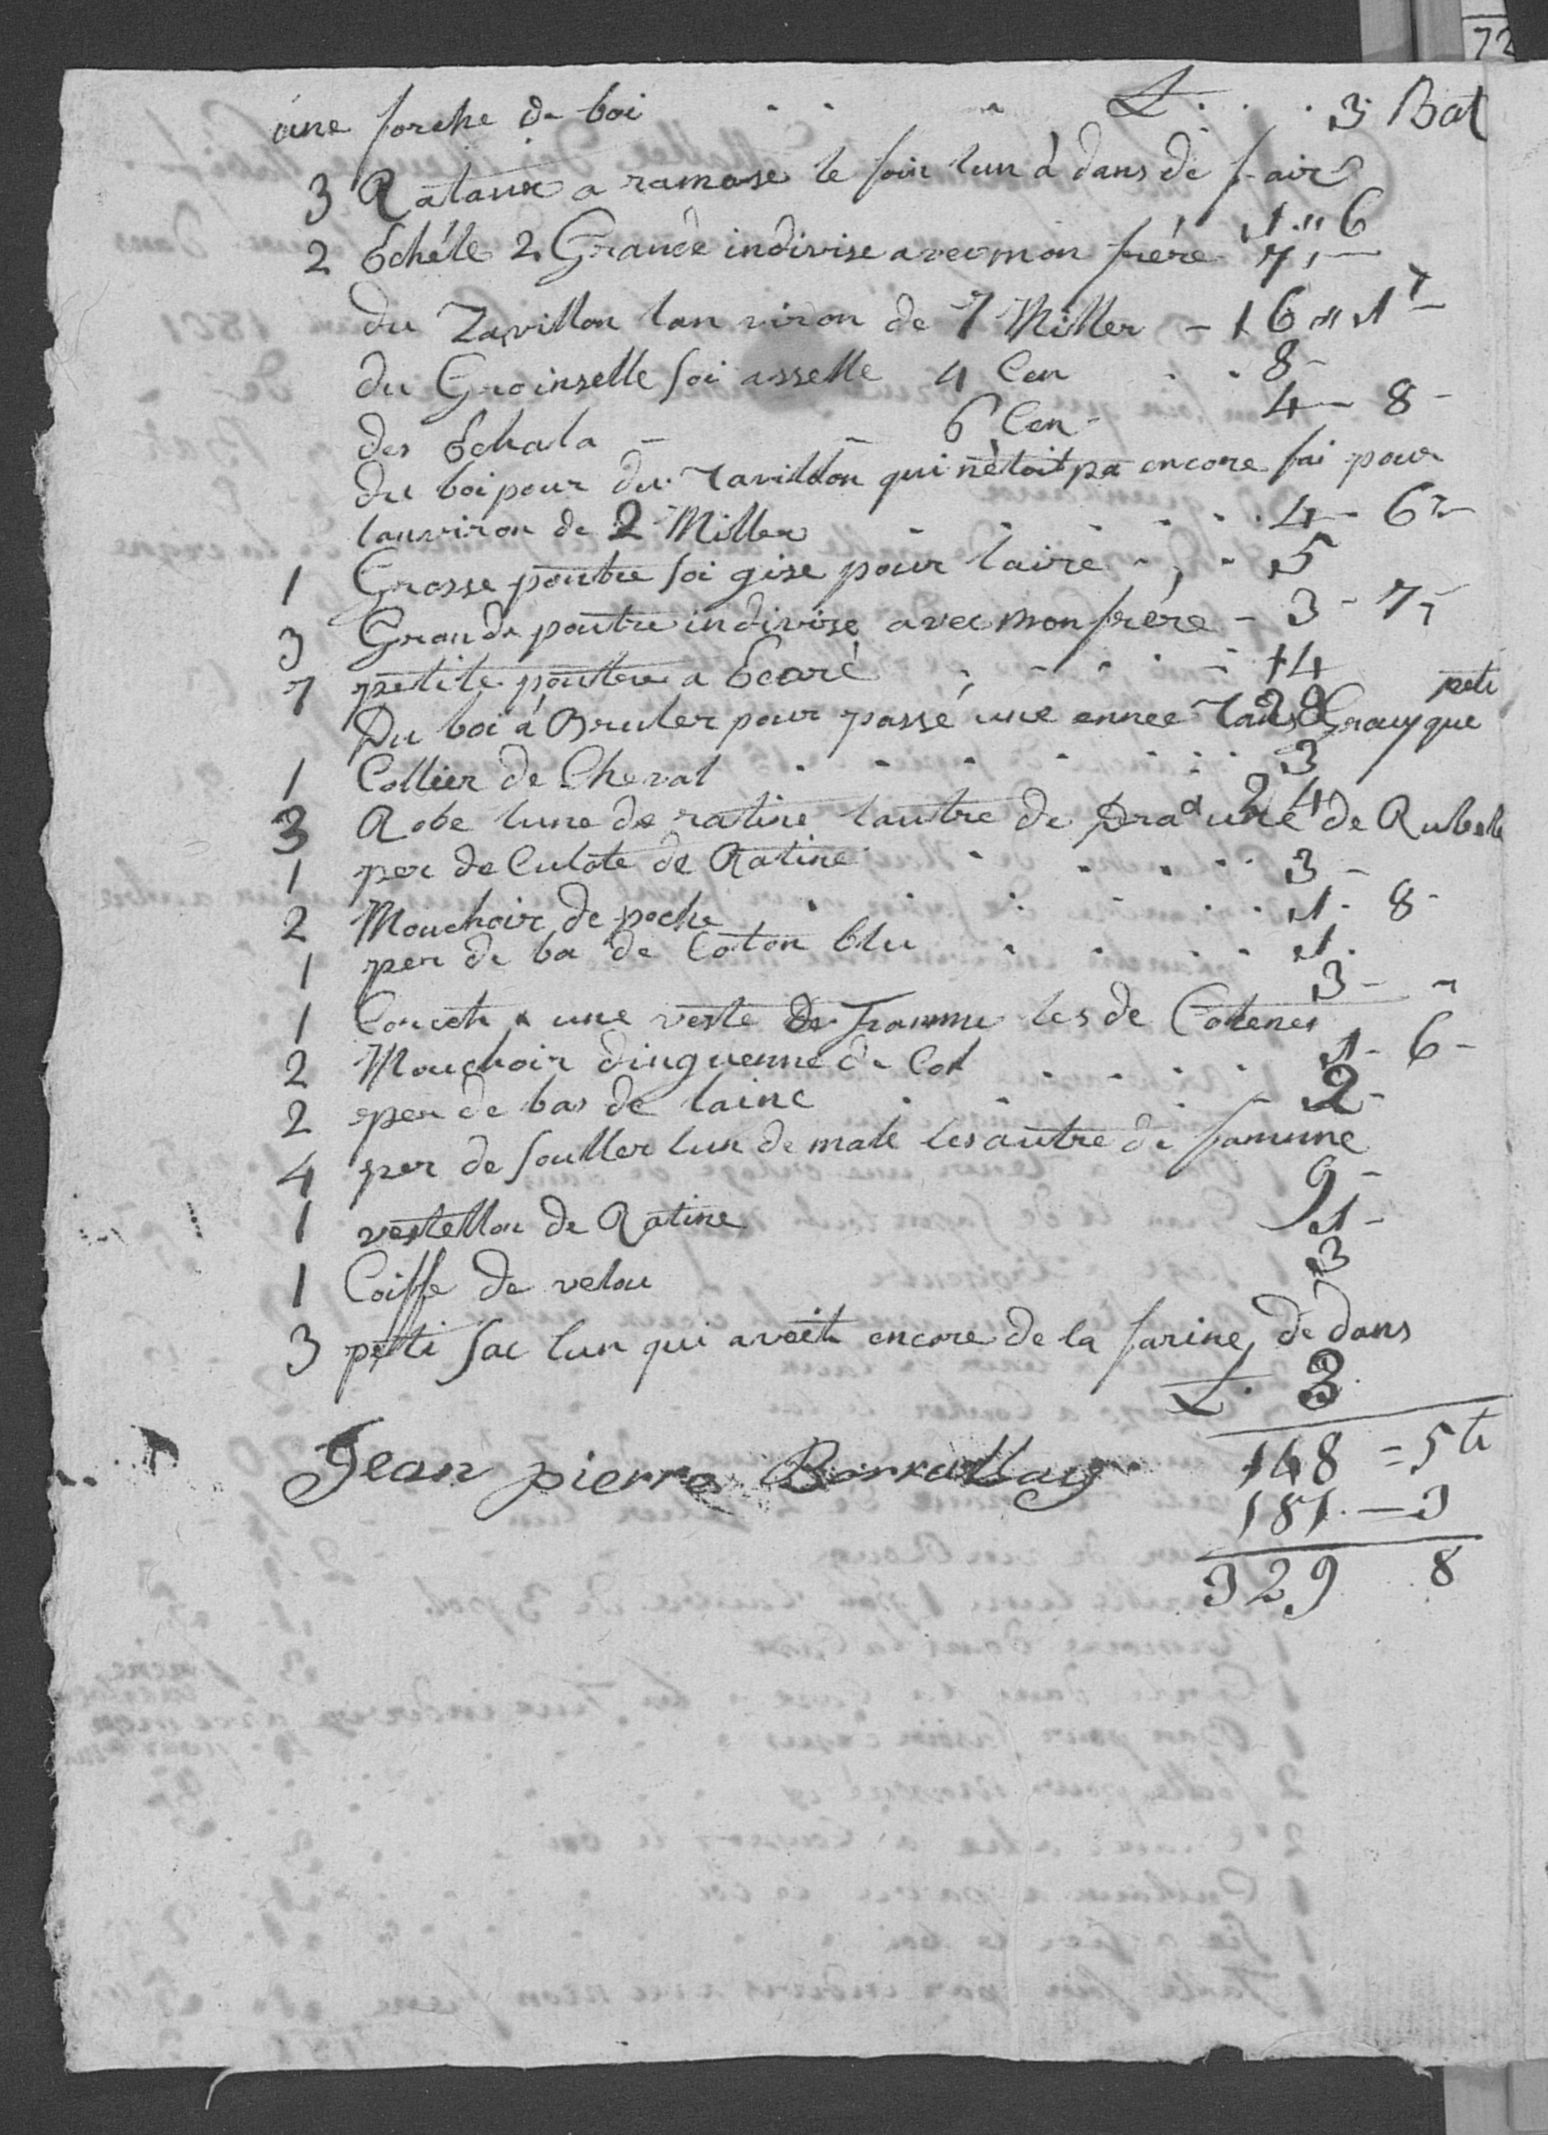 72
une forche de boi . . . L. . . 3 Bat
3 Rataux a ramase le foin lun à dans de fair
1 " 6
2 Echéle 2 Grande indivise avec mon frére 7,—
du Tavillon lanviron de 7 Miller – 16 " 1
du Groinselle soi asselle 4 Cen . . 8 –
des Echala – – 6 Cen – 4 – 8 –
du boi pour du Tavillon qui nètoit pa encore fai pour
lanviron de 2 Miller . . . . . 4 – 6
1 Grosse poutre soi gise pour laire . , . 5
3 Grande poutre indivise avec mon frére – 3 – 7
7 petite poutre a Ecaré , . . . 14
Du boi à Bruler pour passé une annee 28 Grau que
peti
1 Collier de Cheval . . . . . . 3
3 Robe lune de ratine lautre de Dra & une de
24
1 per de Culote de Ratine . . . . 3 –
2 Mouchoir de poche . . . . . 1 . 8 –
1 per de ba de Coton blu . . . . 1 .
3 –
1 une veste de les de
2 Mouchoir de Col . . . . 1 – 6 –
2 per de bas de laine . . . – 2 –
4 per de souller lun de male les autre de famme
9 –
1 vestellon de Ratine 1 –
1 Coiffe de velou 3
3 petti sac lun qui avoit encore de la farine de dans
L. 3
148 = 5
Jean pierre
181 — 3
329 8